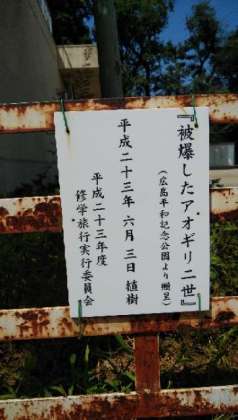 『被爆したアオギリ二世』
（広島平和記念公園より贈呈）
平成二十三年六月三日植樹
平成二十三年度
修学旅行実行委員会